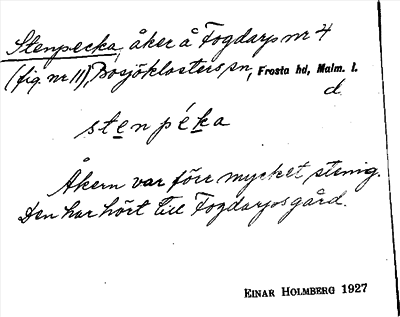 Stenpecka, åker å Fogdarp nr 4
(fig. nr 11), Bosjöklosters sn, Frosta hd, Malm. l.
d.
stenpéka
Åkern var förr mycket stenig.
Den har hört till Fogdarps gård.
EINAR HOLMBERG 1927